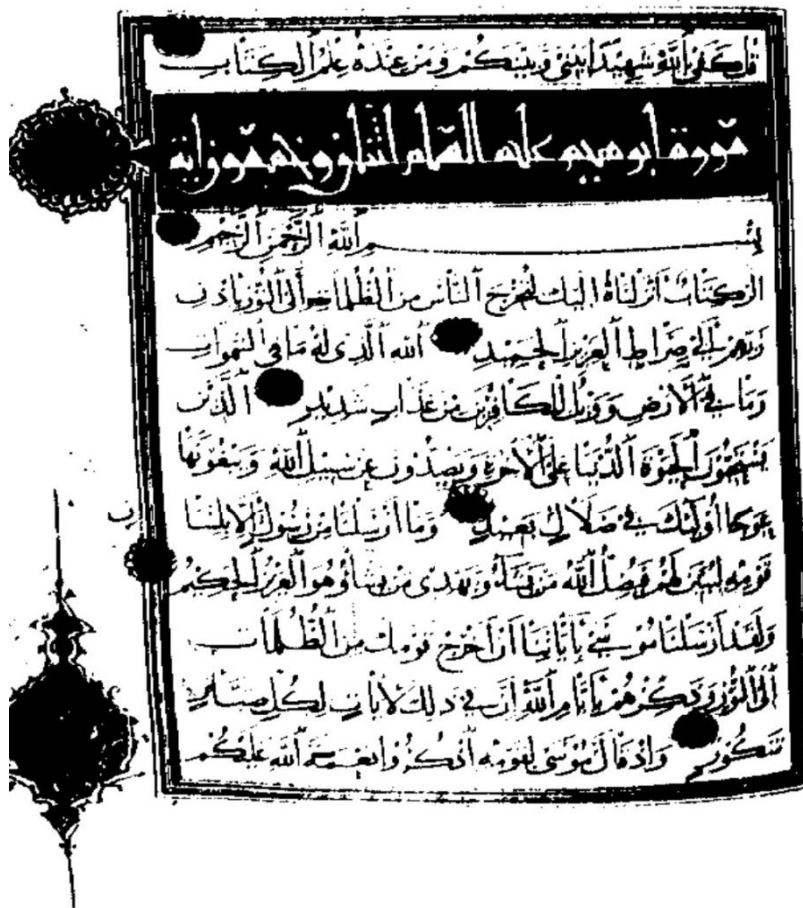 قُلْ كَفَىٰ بِاللَّهِ شَهِيدًا بَيْنِي وَبَيْنَكُمْ وَمَنْ عِنْدَهُ عِلْمُ الْكِتَابِ
سورة ابرهيم عليه السلام اثنان وخمسون اية
بِسْمِ اللَّهِ الرَّحْمَٰنِ الرَّحِيمِ
الر كِتَابٌ أَنْزَلْنَاهُ إِلَيْكَ لِتُخْرِجَ النَّاسَ مِنَ الظُّلُمَاتِ إِلَى النُّورِ بِإِذْنِ
رَبِّهِمْ إِلَىٰ صِرَاطِ الْعَزِيزِ الْحَمِيدِ اللَّهِ الَّذِي لَهُ مَا فِي السَّمَوَاتِ
وَمَا فِي الْأَرْضِ وَوَيْلٌ لِلْكَافِرِينَ مِنْ عَذَابٍ شَدِيدٍ الَّذِينَ
يَسْتَحِبُّونَ الْحَيَوةَ الدُّنْيَا عَلَى الْآخِرَةِ وَيَصُدُّونَ عَنْ سَبِيلِ اللَّهِ وَيَبْغُونَهَا
عِوَجًا أُولَٰئِكَ فِي ضَلَالٍ بَعِيدٍ وَمَا أَرْسَلْنَا مِنْ رَسُولٍ إِلَّا بِلِسَانِ
قَوْمِهِ لِيُبَيِّنَ لَهُمْ فَيُضِلُّ اللَّهُ مَنْ يَشَاءُ وَيَهْدِي مَنْ يَشَاءُ وَهُوَ الْعَزِيزُ الْحَكِيمُ
وَلَقَدْ أَرْسَلْنَا مُوسَىٰ بِآيَاتِنَا أَنْ أَخْرِجْ قَوْمَكَ مِنَ الظُّلُمَاتِ
إِلَى النُّورِ وَذَكِّرْهُمْ بِأَيَّامِ اللَّهِ إِنَّ فِي ذَٰلِكَ لَآيَاتٍ لِكُلِّ صَبَّارٍ
شَكُورٍ وَإِذْ قَالَ مُوسَىٰ لِقَوْمِهِ اذْكُرُوا نِعْمَةَ اللَّهِ عَلَيْكُمْ